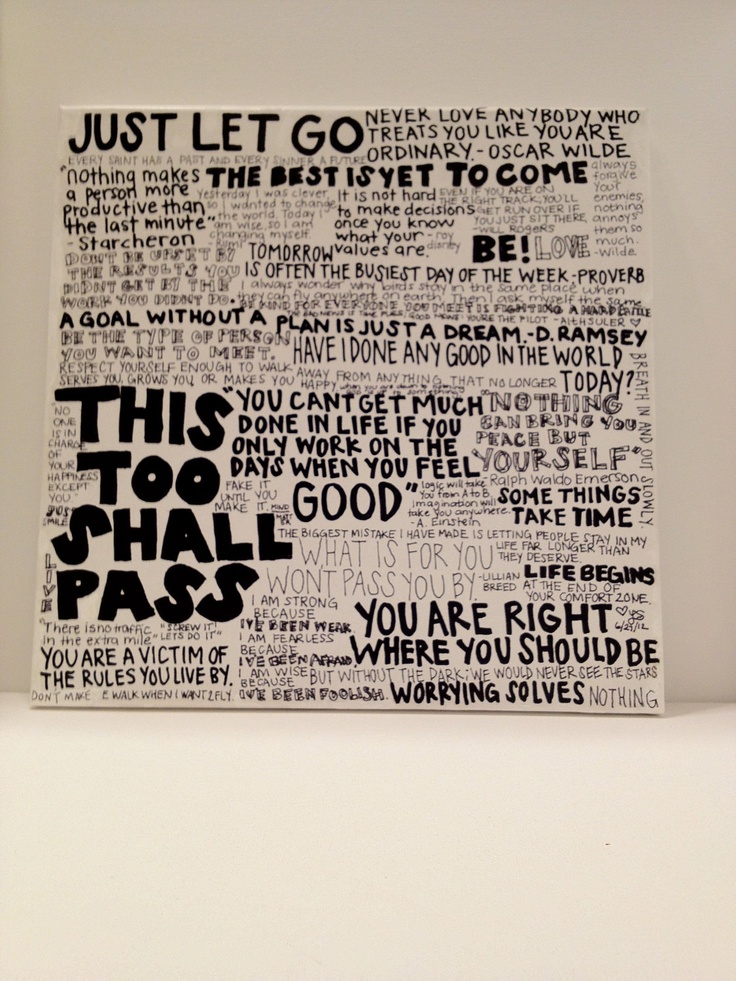 JUST LET GO
NEVER LOVE ANYBODY WHO
TREATS YOU LIKE YOU ARE
ORDINARY. - OSCAR WILDE
EVERY SAINT HAS A PAST AND EVERY SINNER A FUTURE
"nothing makes
a person more
productive than
the last minute"
- Starcheron
THE BEST IS YET TO COME
always
forgive
your
enemies,
nothing
annoys
them so
much.
-wilde.
Yesterday I was clever,
so I wanted to change
the world. Today I
am wise, so I am
changing myself.
-Rumi
It is not hard
to make decisions
once you know
what your
values are.
-roy
disney
EVEN IF YOU ARE ON
THE RIGHT TRACK, YOU'LL
GET RUN OVER IF
YOU JUST SIT THERE.
-WILL ROGERS
BE! LOVE
DON'T BE UPSET BY
THE RESULTS YOU
DIDN'T GET BY THE
WORK YOU DIDN'T DO.
TOMORROW
IS OFTEN THE BUSIEST DAY OF THE WEEK - PROVERB
I always wonder why birds stay in the same place when
they can fly anywhere on earth. Then I ask myself the same
BE KIND FOR EVERYONE YOU MEET IS FIGHTING A HARD BATTLE
THE BAD NEWS IS TIME FLIES. GOOD NEWS: YOU'RE THE PILOT - AlthSULER
A GOAL WITHOUT A PLAN IS JUST A DREAM. - D. RAMSEY
BE THE TYPE OF PERSON
YOU WANT TO MEET.
HAVE I DONE ANY GOOD IN THE WORLD
TODAY?
RESPECT YOURSELF ENOUGH TO WALK AWAY FROM ANYTHING THAT NO LONGER
SERVES YOU, GROWS YOU, OR MAKES YOU HAPPY
BREATH IN AND OUT SLOWLY
"NO
ONE
IS IN
CHARGE
OF
YOUR
HAPPINESS
EXCEPT
YOU."
JUST
SMILE
LIVE
THIS
TOO
SHALL
PASS
"YOU CANT GET MUCH
DONE IN LIFE IF YOU
ONLY WORK ON THE
DAYS WHEN YOU FEEL
GOOD"
NOTHING
CAN BRING YOU
PEACE BUT
YOURSELF"
Ralph Waldo Emerson
FAKE IT
UNTIL YOU
MAKE IT.
MIND
"logic will take
you from A to B,
imagination will
take you anywhere."
- A. Einstein
SOME THINGS
TAKE TIME
THE BIGGEST MISTAKE I HAVE MADE IS LETTING PEOPLE STAY IN MY
LIFE FAR LONGER THAN
THEY DESERVE.
WHAT IS FOR YOU
WONT PASS YOU BY.
-LILLIAN
BREED
LIFE BEGINS
AT THE END OF
YOUR COMFORT ZONE.
I AM STRONG
BECAUSE
I'VE BEEN WEAK.
I AM FEARLESS
BECAUSE
I'VE BEEN AFRAID
I AM WISE
BECAUSE
I'VE BEEN FOOLISH.
YOU ARE RIGHT
WHERE YOU SHOULD BE
"There is no traffic
in the extra mile"
"SCREW IT!
"LET'S DO IT"
YOU ARE A VICTIM OF
THE RULES YOU LIVE BY.
BUT WITHOUT THE DARK; WE WOULD NEVER SEE THE STARS
DON'T MAKE E WALK WHEN I WANT 2 FLY.
WORRYING SOLVES NOTHING